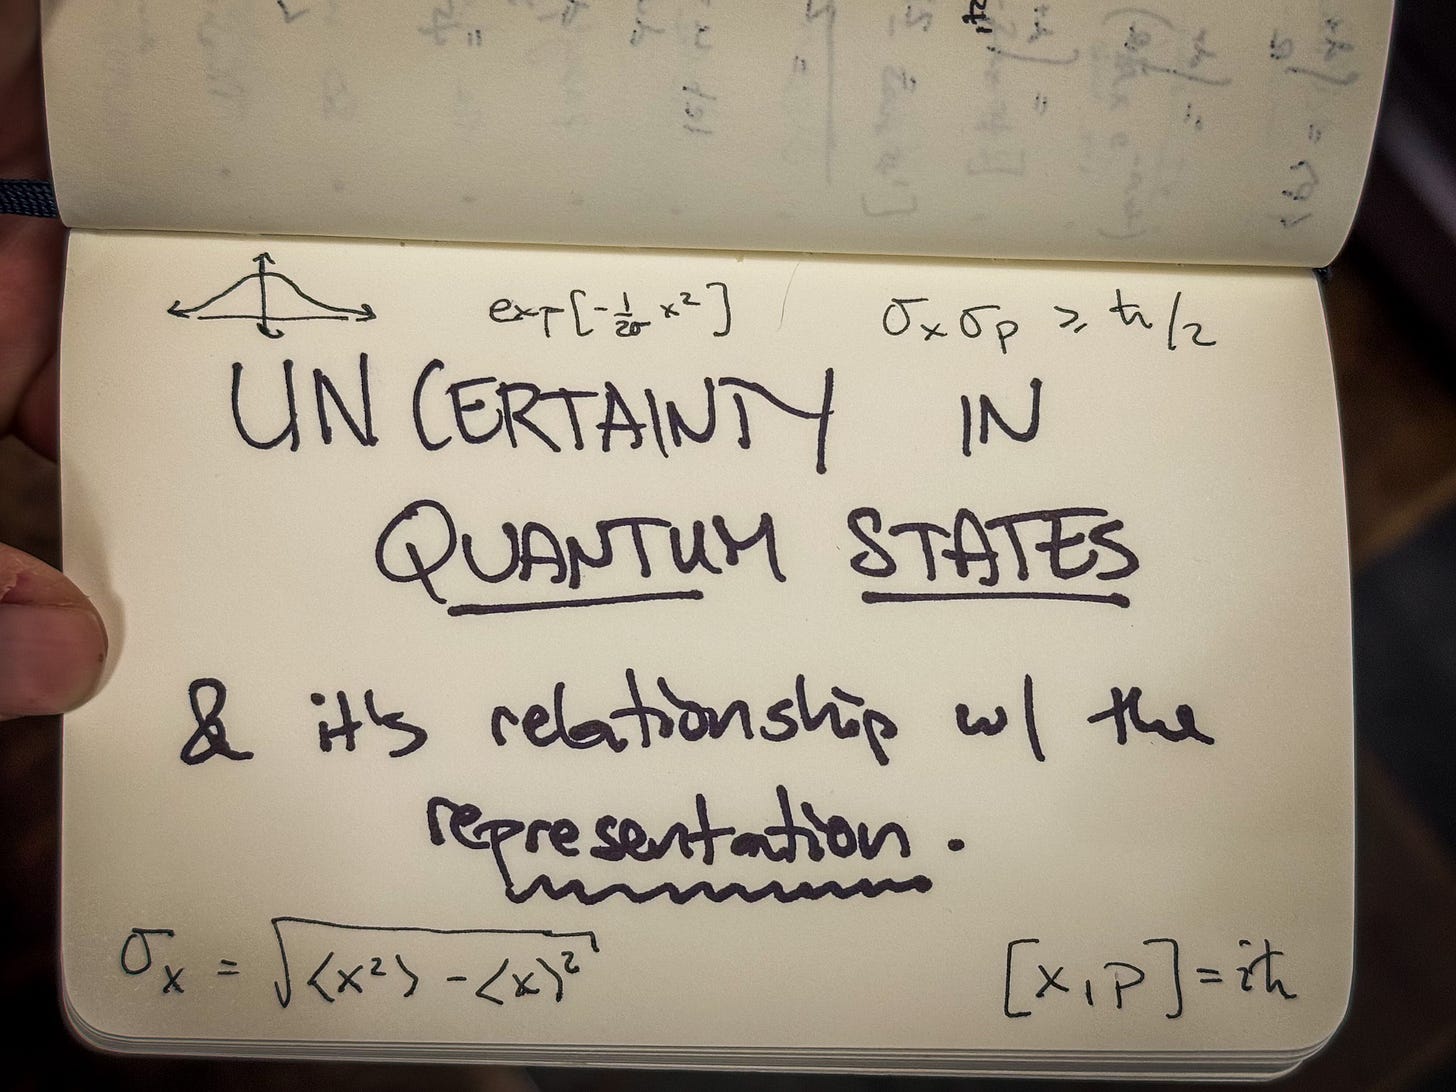 exp[-1/2σ x²]
σₓσₚ ≥ ħ/2
UNCERTAINTY IN
QUANTUM STATES
& it's relationship w/ the
representation.
σₓ = √(⟨x²⟩ - ⟨x⟩²)
[x,p] = iħ